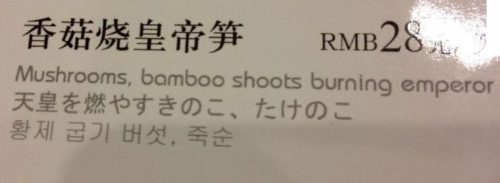 香菇烧皇帝笋 RMB28元/
Mushrooms, bamboo shoots burning emperor
天皇を燃やすきのこ、たけのこ
황제 굽기 버섯, 죽순